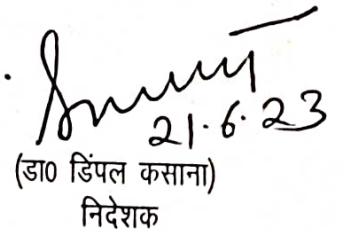 21.6.23
(डा0 डिंपल कसाना)
निदेशक